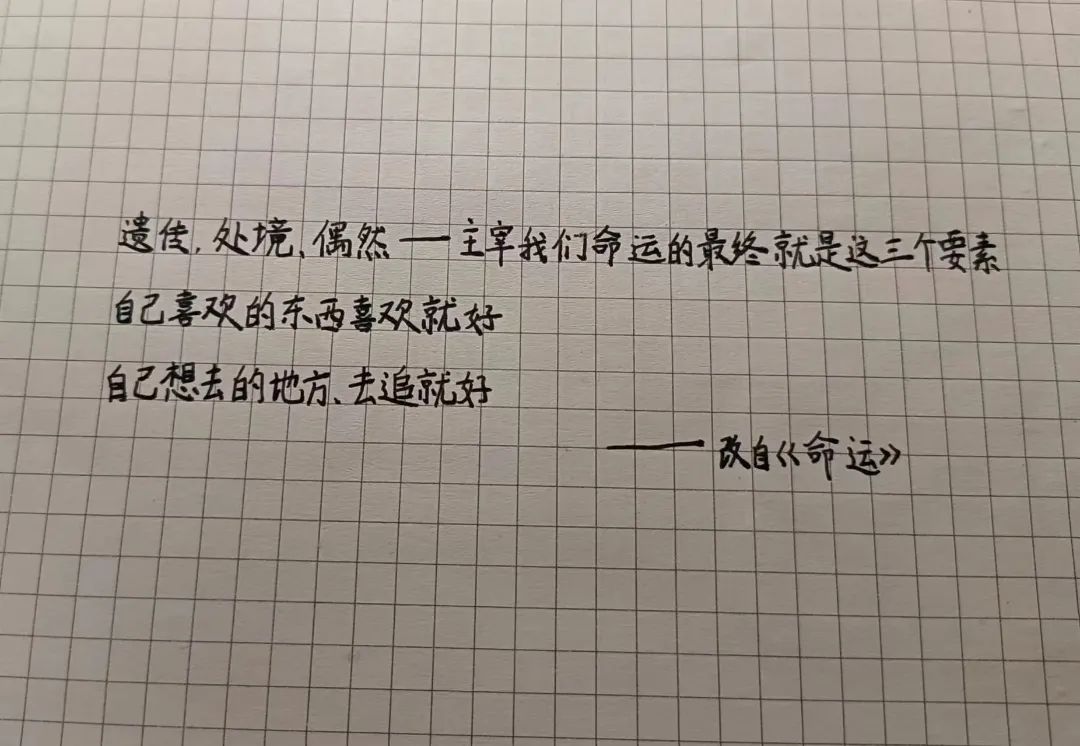 遗传、处境、偶然——主宰我们命运的最终就是这三个要素
自己喜欢的东西喜欢就好
自己想去的地方、去追就好
——改自《命运》